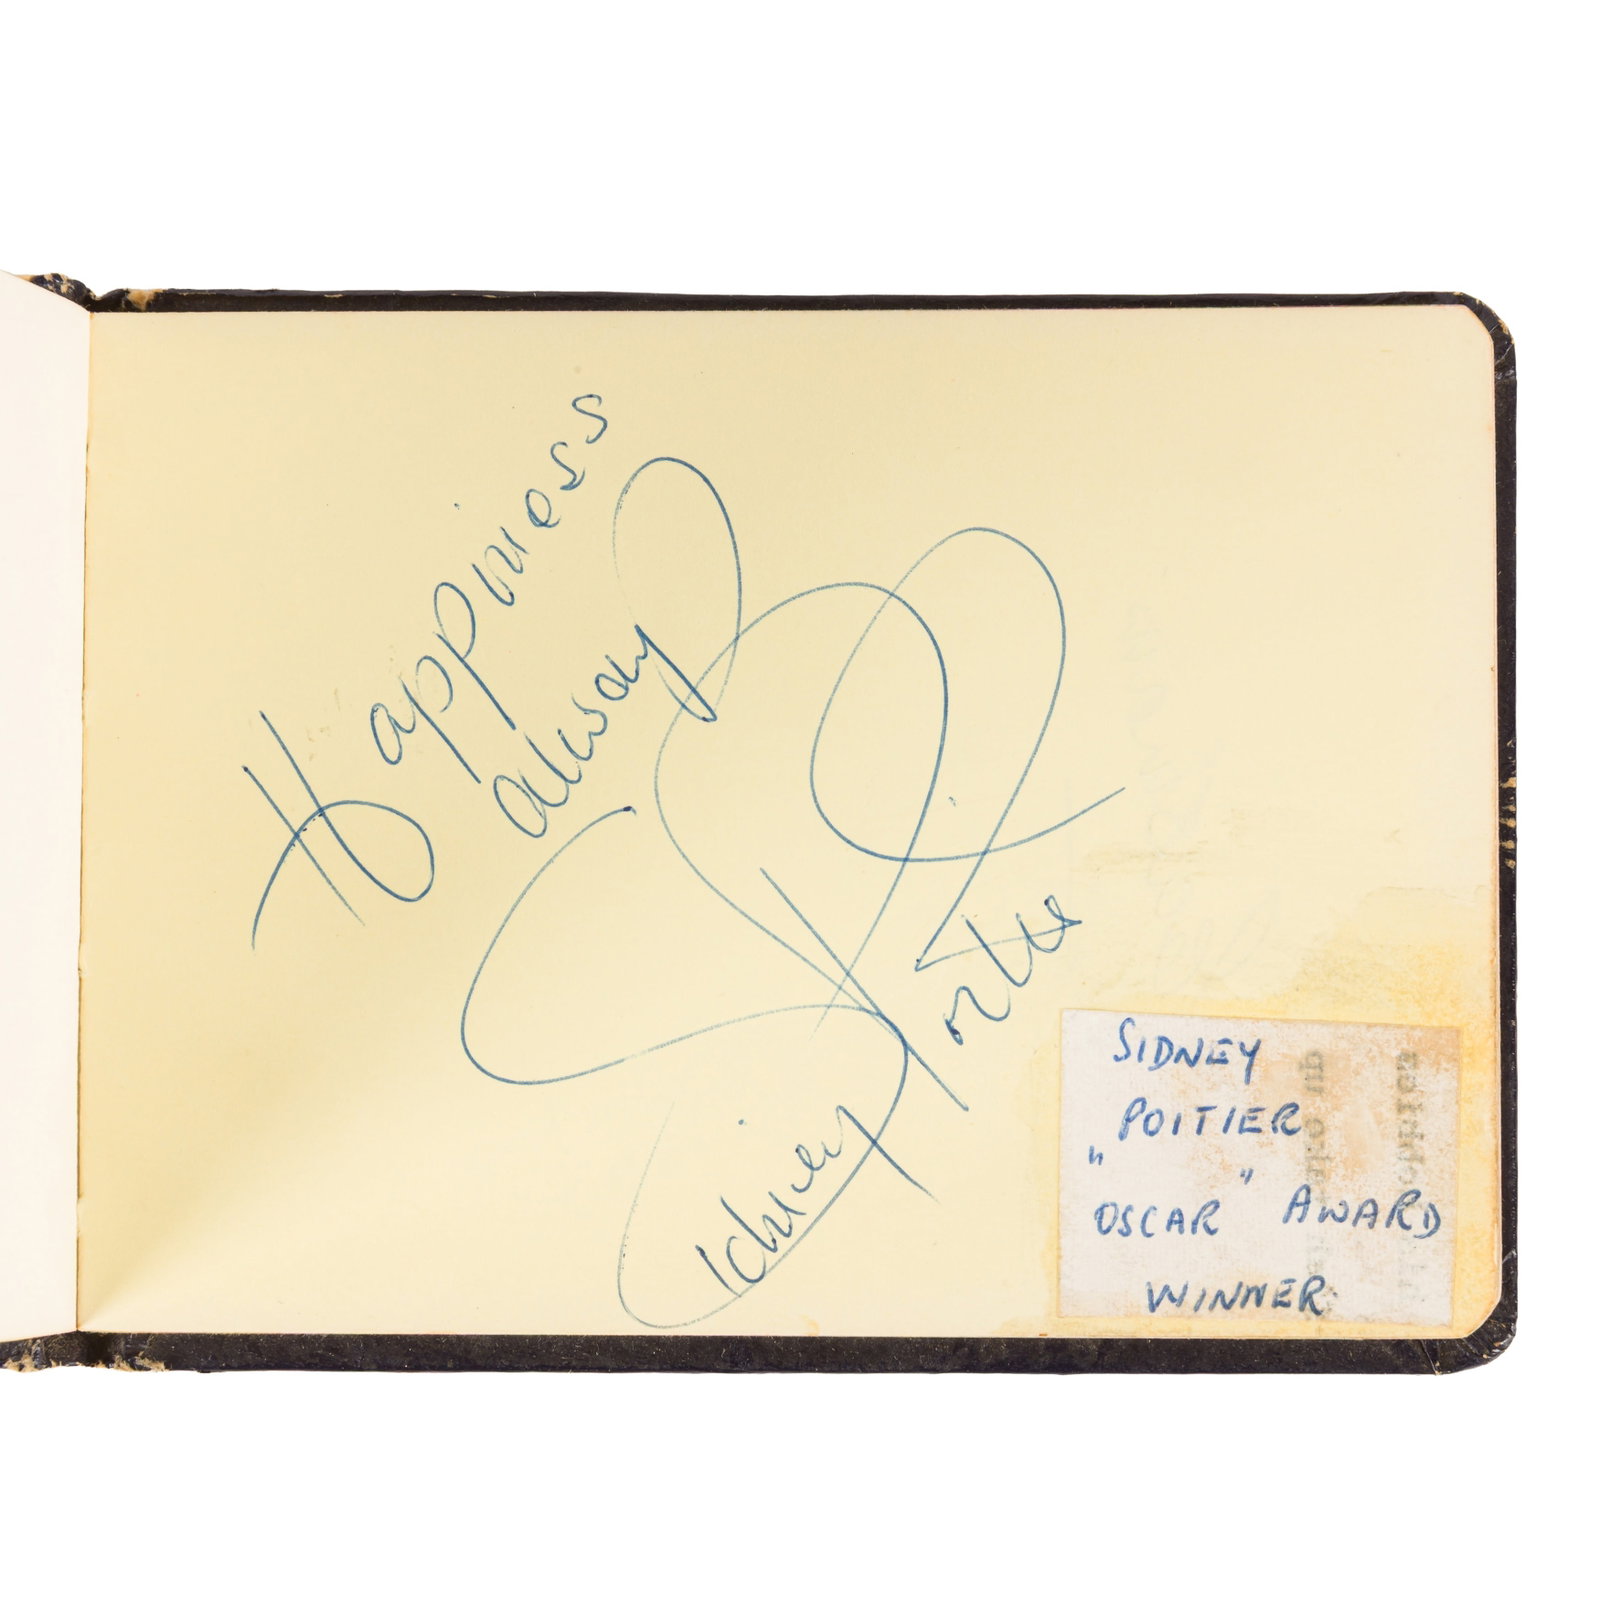 Happiness
always
Sidney Poitier
SIDNEY
POITIER
"OSCAR" AWARD
WINNER